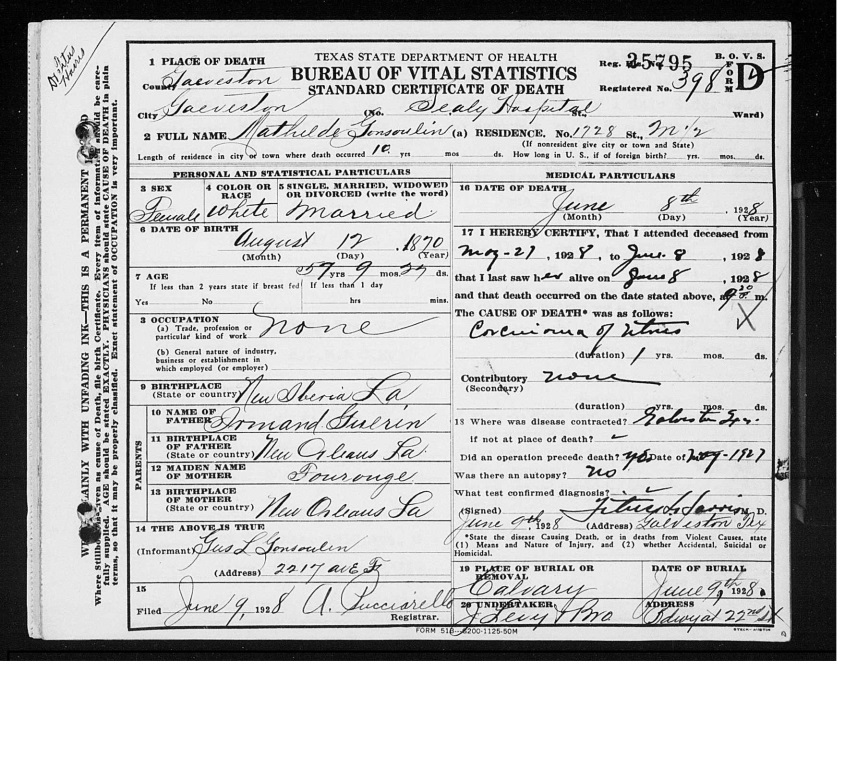 Dr Titus
Harris
TEXAS STATE DEPARTMENT OF HEALTH
BUREAU OF VITAL STATISTICS
STANDARD CERTIFICATE OF DEATH
Reg. Dis. No. 25795
B. O. V. S.
FORM D
Registered No. 398
1 PLACE OF DEATH
County Galveston
City Galveston (No. Sealy Hospital St., Ward)
2 FULL NAME Mathilde Gonsoulin (a) RESIDENCE. No. 1728 St., M ½
(If nonresident give city or town and State)
Length of residence in city or town where death occurred 10 yrs. mos. ds. How long in U. S., if of foreign birth? yrs. mos. ds.
PERSONAL AND STATISTICAL PARTICULARS
3 SEX Female
4 COLOR OR RACE White
5 SINGLE, MARRIED, WIDOWED OR DIVORCED (write the word) Married
6 DATE OF BIRTH August 12, 1870
(Month) (Day) (Year)
7 AGE 57 yrs 9 mos. 27 ds.
If less than 2 years state if breast fed If less than 1 day
Yes No hrs mins.
8 OCCUPATION
(a) Trade, profession or particular kind of work none
(b) General nature of industry, business or establishment in which employed (or employer)
9 BIRTHPLACE
(State or country) New Iberia La
PARENTS
10 NAME OF FATHER Armand Guerin
11 BIRTHPLACE OF FATHER
(State or country) New Orleans La.
12 MAIDEN NAME OF MOTHER Fourouge
13 BIRTHPLACE OF MOTHER
(State or country) New Orleans La
14 THE ABOVE IS TRUE
(Informant) Gus L Gonsoulin
(Address) 2217 ave F
15
Filed June 9, 1928 A. Pucciarello
Registrar.
MEDICAL PARTICULARS
16 DATE OF DEATH June 8th, 1928
(Month) (Day) (Year)
17 I HEREBY CERTIFY, That I attended deceased from
May-27, 1928, to June 8, 1928
that I last saw her alive on June 8, 1928
and that death occurred on the date stated above, at 9 30 P. m.
The CAUSE OF DEATH* was as follows:
Carcinoma of Uterus
(duration) 1 yrs. mos. ds.
Contributory none
(Secondary)
(duration) yrs. mos. ds.
18 Where was disease contracted? Galveston Tex.
If not at place of death?
Did an operation precede death? yes Date of May-1927
Was there an autopsy? no
What test confirmed diagnosis?
(Signed) Titus H Harris M. D.
June 9th, 1928 (Address) Galveston Tex
*State the Disease Causing Death, or in deaths from Violent Causes, state
(1) Means and Nature of Injury, and (2) whether Accidental, Suicidal or
Homicidal.
19 PLACE OF BURIAL OR REMOVAL Calvary
DATE OF BURIAL June 9th, 1928
20 UNDERTAKER J Levy & Bro
ADDRESS Bdwy at 22nd St
FORM 513
AINLY WITH UNFADING INK—THIS IS A PERMANENT
should be carefully supplied. AGE should be stated EXACTLY. PHYSICIANS should state CAUSE OF DEATH in plain
terms, so that it may be properly classified. Exact statement of OCCUPATION is very important.